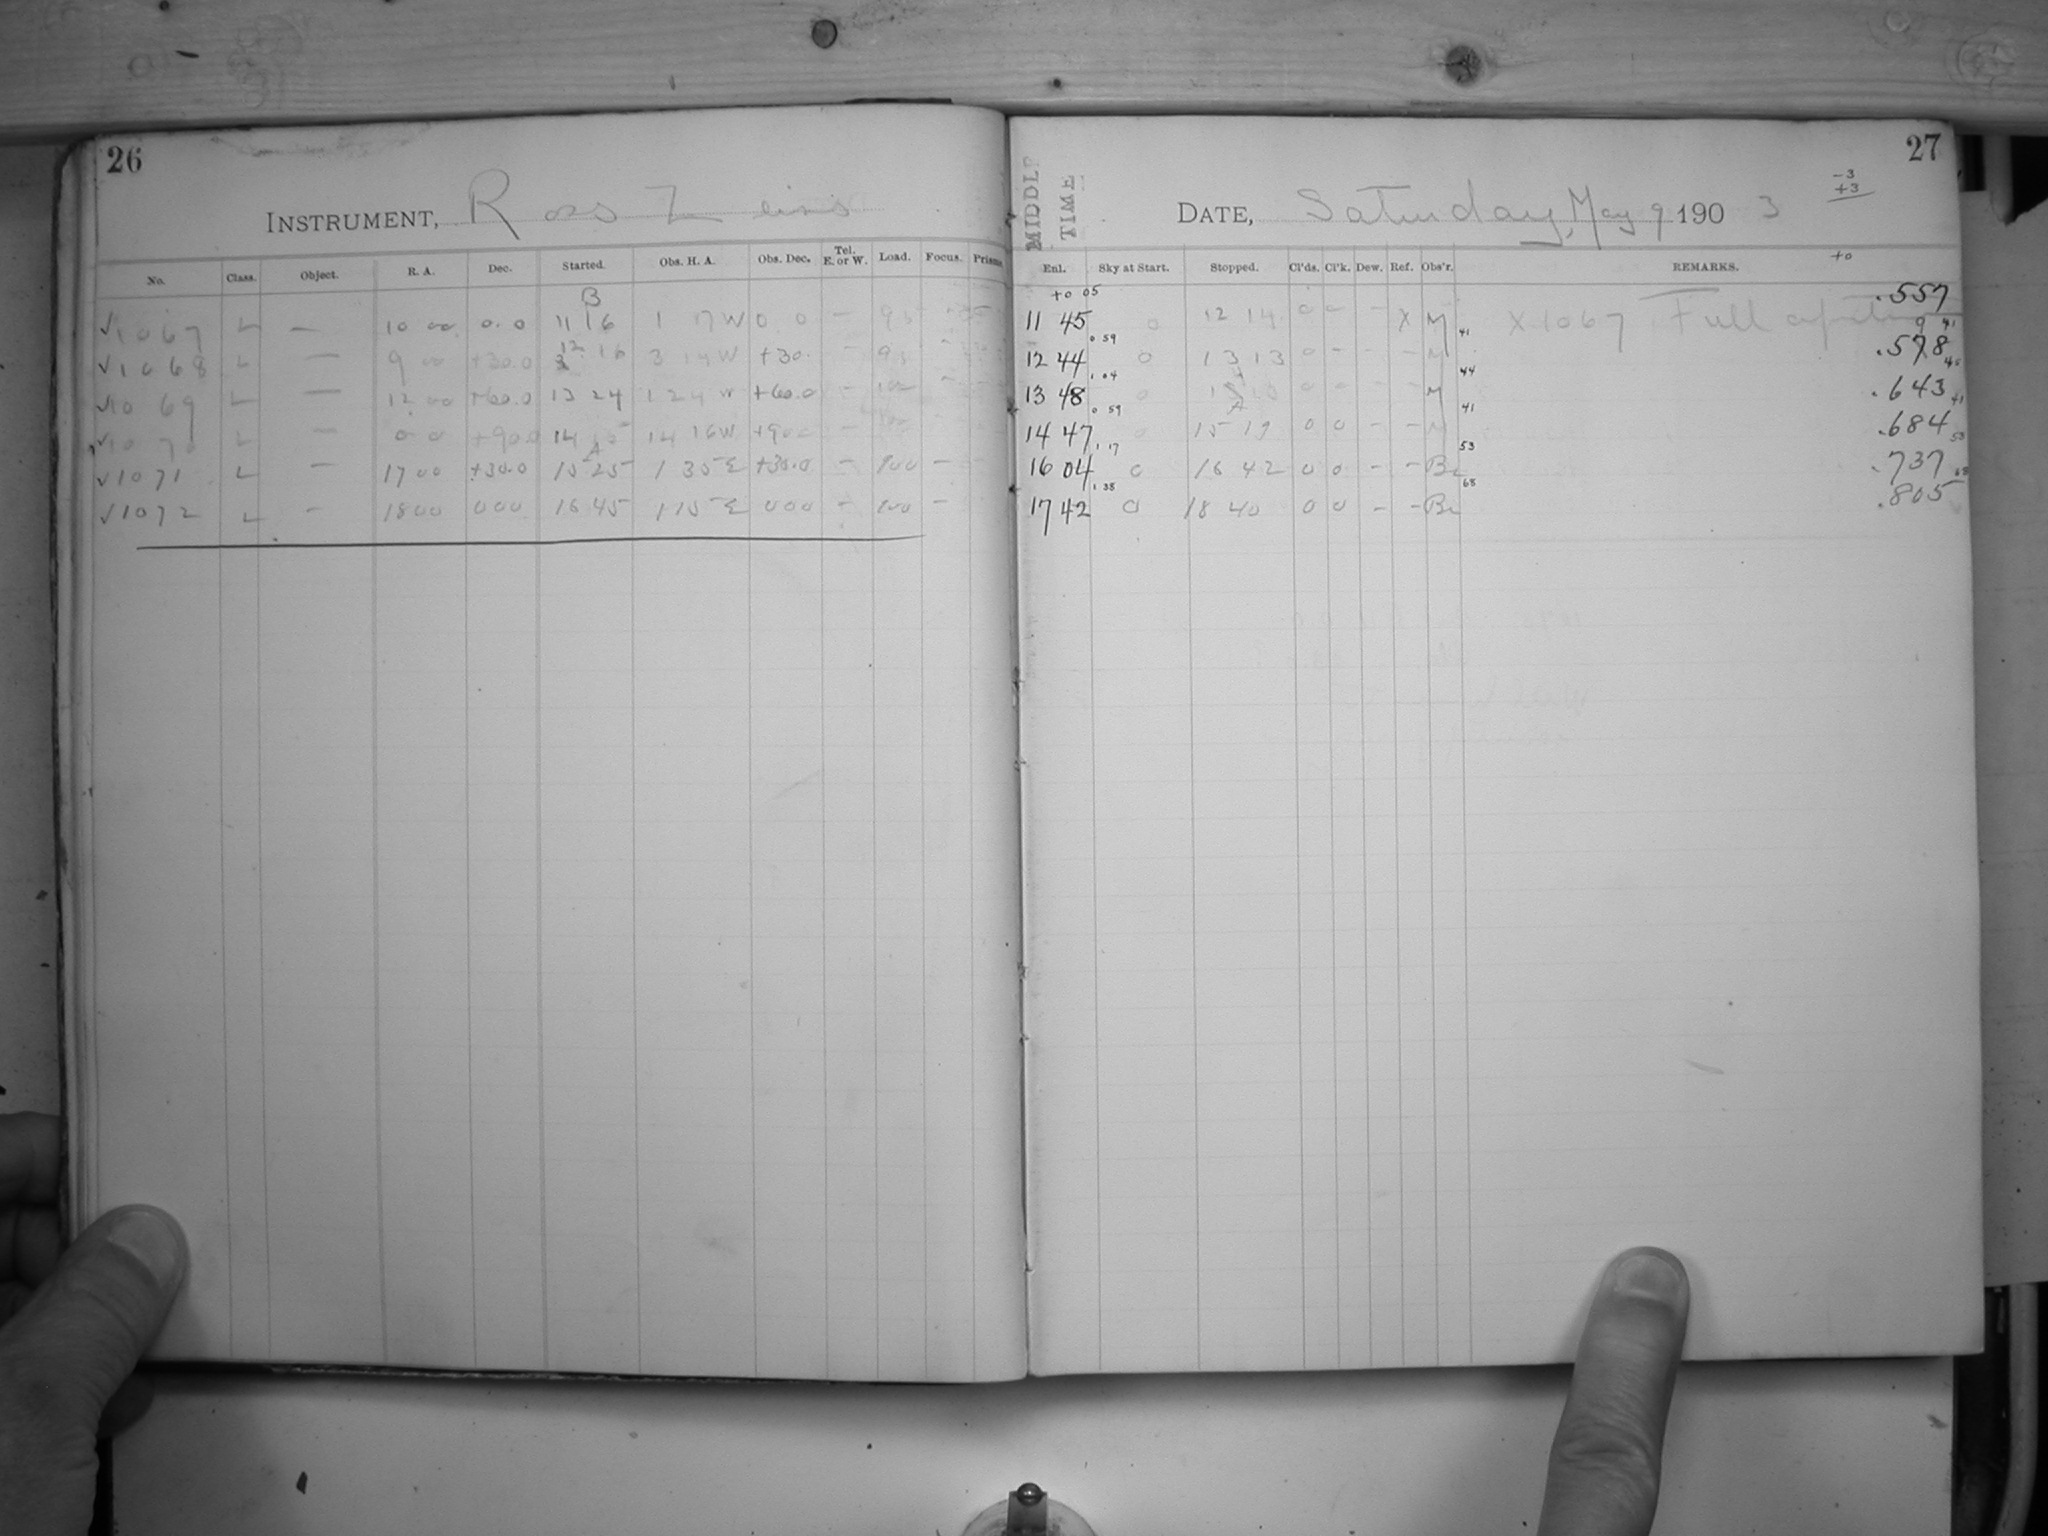 26
INSTRUMENT, Ross Zeiss
No. Class. Object. R. A. Dec. Started. Obs. H. A. Obs. Dec. Tel. E. or W. Load. Focus. Prisms
B
√1067 L — 10 00 0.0 11 16 1 17W 0 0 —
√1068 L — 9 00 +30.0 12 16 3 14W +30. —
√1069 L — 12 00 +60.0 13 24 1 24 W +60.0 —
√1070 L — 0.0 +90.0 14 14 16W +90 —
√1071 L — 17 00 +30.0 15 25 1 35 E +30.0 — —
√1072 L — 18 00 000 16 45 1 15 E 000 — —
27
MIDDLE TIME
DATE, Saturday, May 9 1903
-3
+3
+0
Enl. Sky at Start. Stopped. Cl'ds. Cl'k. Dew. Ref. Obs'r. REMARKS.
+0 05 .557
11 45 0 12 14 0 0 — X M X 1067 Full
0 59 41 9 41
12 44 0 13 13 0 — — — M .578
1.04 44
13 48 0 0 0 — — M .643
0 59 41 41
14 47 15 19 0 0 — — M .684
1.17 53 53
16 04 0 16 42 0 0 — — .737
1.38 68 68
17 42 0 18 40 0 0 — — .805